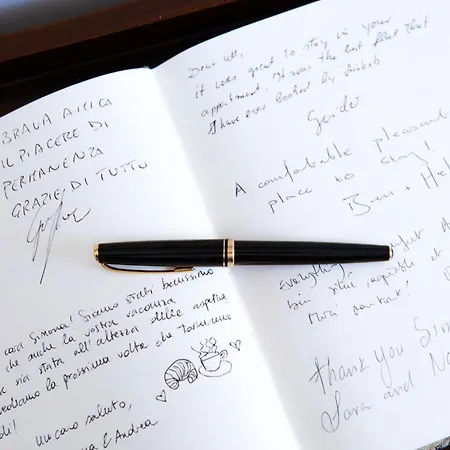 BRAVA AMICA
IL PIACERE DI
PERMANENZA
GRAZIE DI TUTTO
cara Simona! Siamo stati benissimo
che anche la vostra vacanza
sia stata all'altezza delle aspetta
vediamo la prossima volta che torniamo
un caro saluto,
& Andrea
Dear all,
it was great to stay in your
appartment. It was the best flat that
I have ever booked by Airbnb
A comfortable pleasant
place to stay!
Ben + Hel
Everything
bien situé
Thank You Sim
Sara and